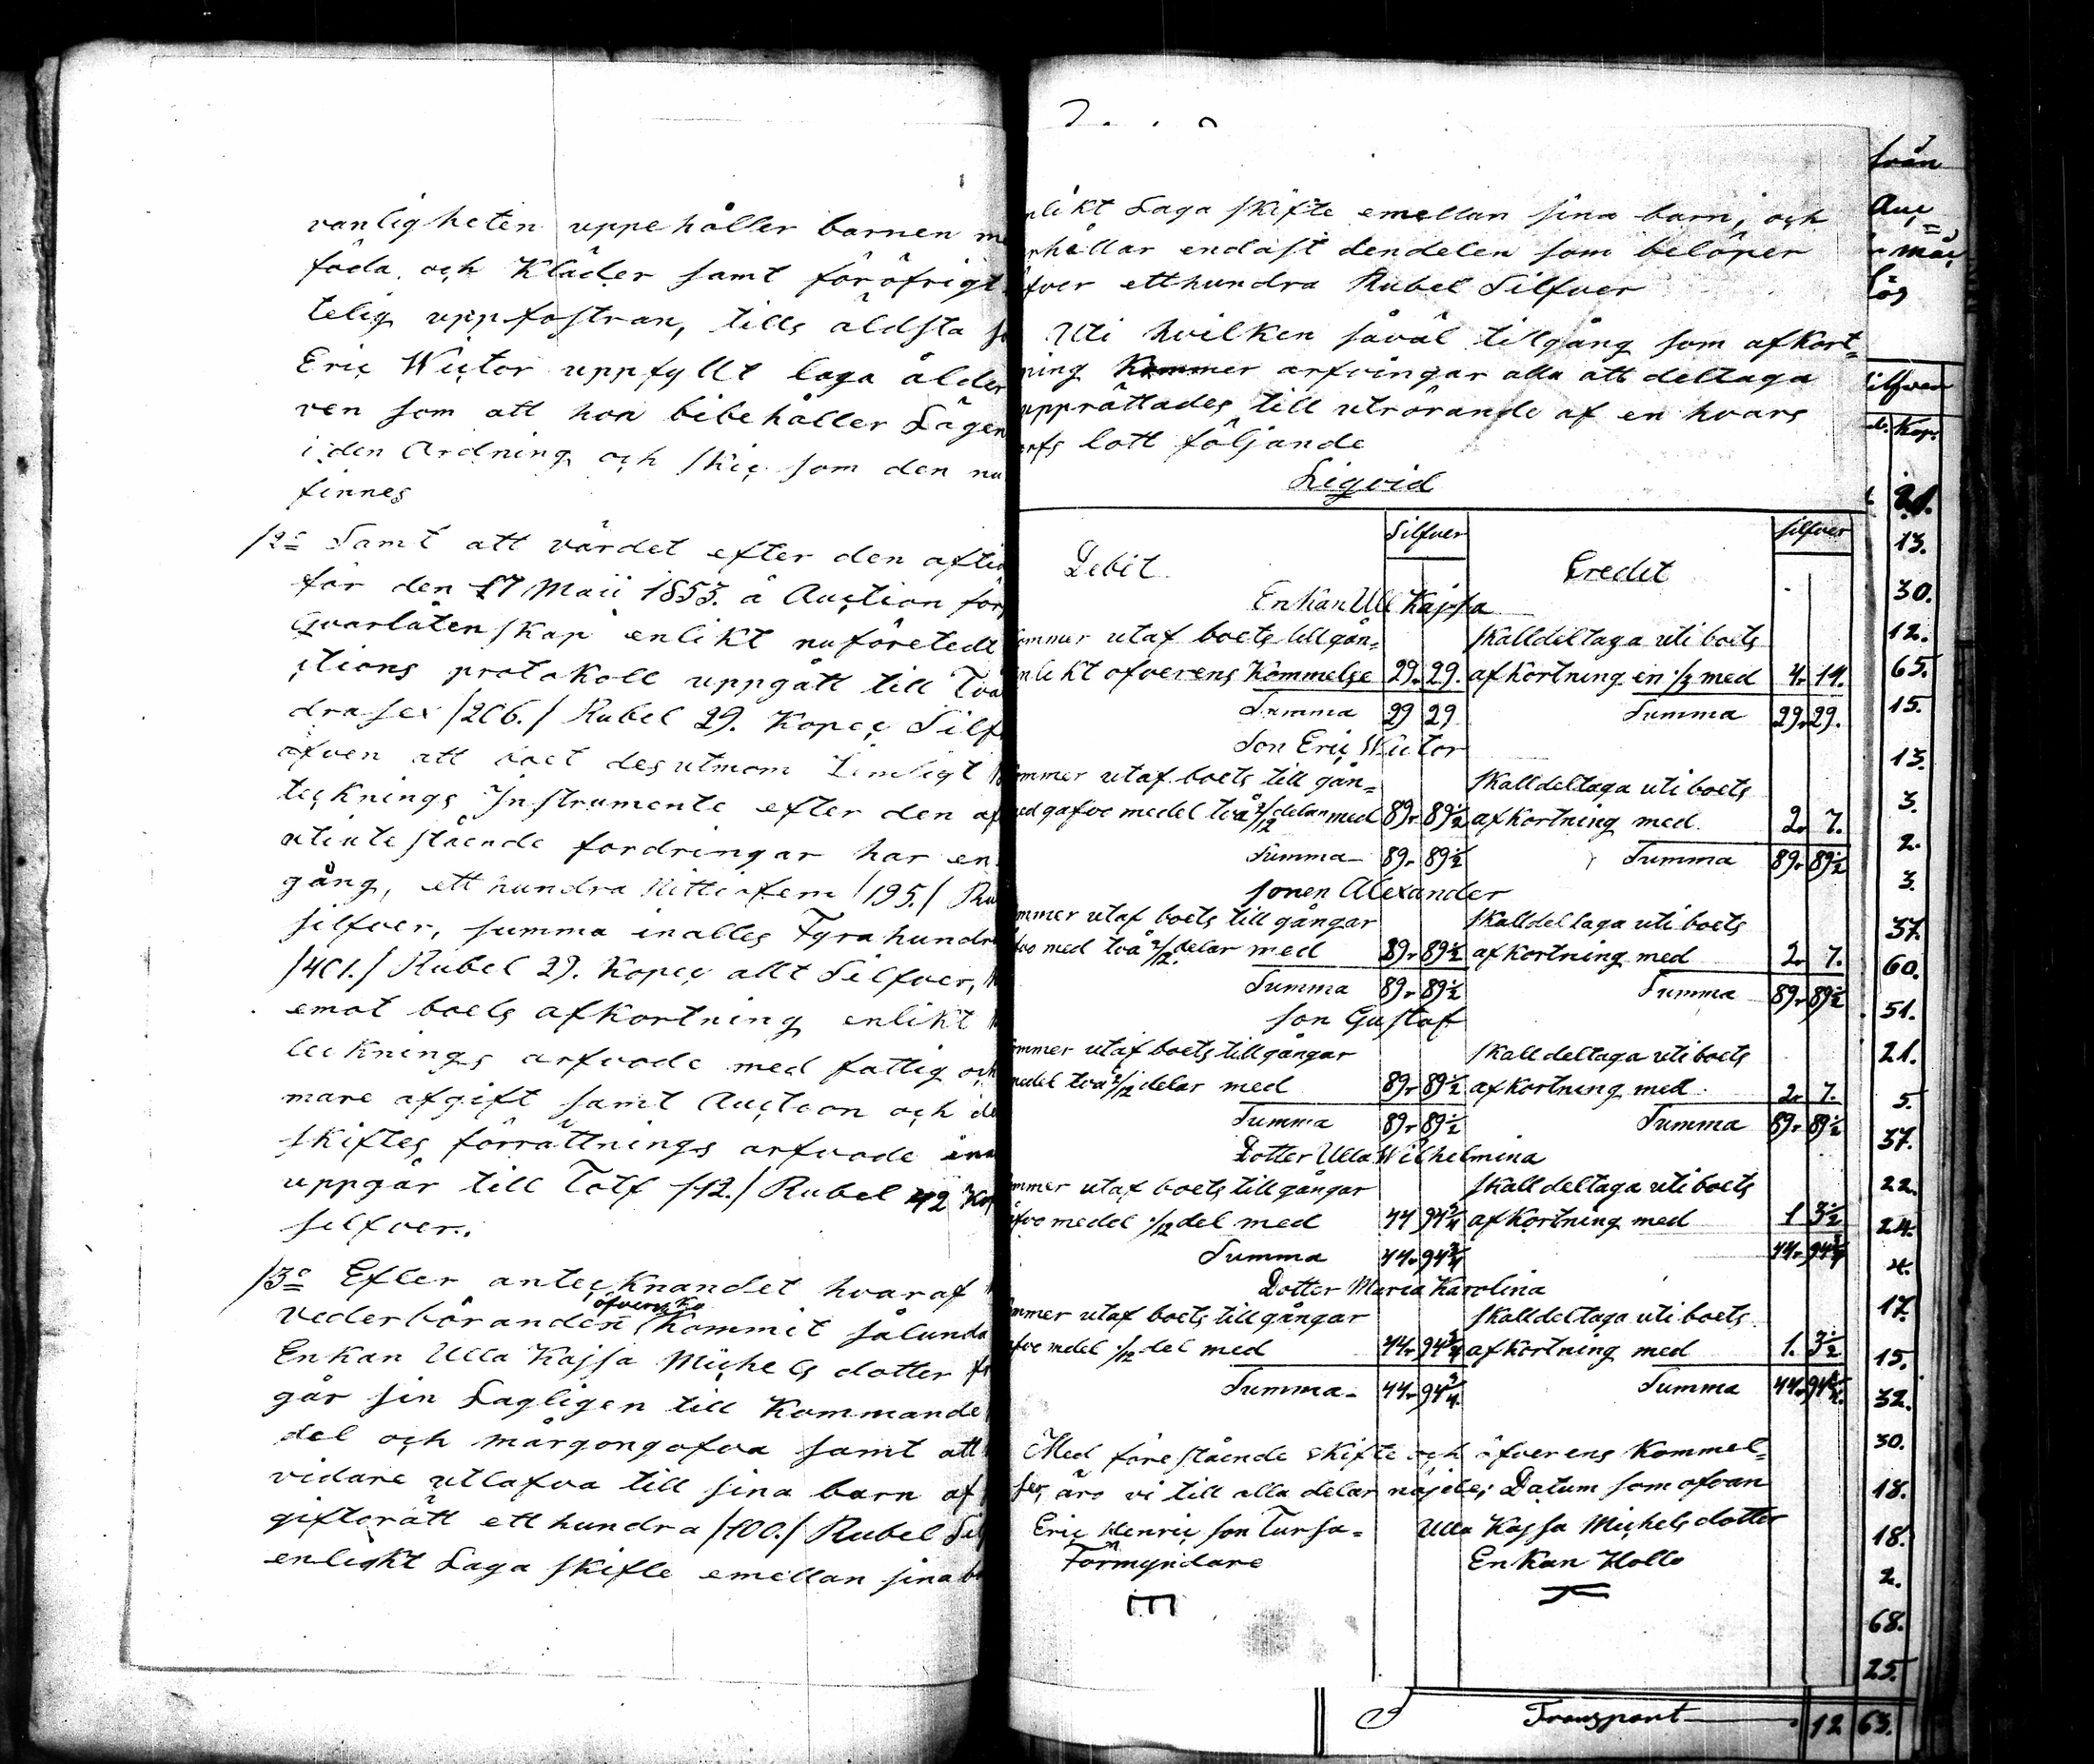 vanligheten uppehåller barnen me
föda och Kläder samt föröfrigt
telig uppfostran, tills äldsta so
Eric Wictor uppfyllt laga ålder
ven som att hon bibehåller Lägen
i den Ordning och skic som den nu
finnes
/2o Samt att värdet efter den aflid
för den 17 Maii 1853. å Auction för
Qvarlåtenskap enlikt nuföretedt
ctions protokoll uppgått till Två
drasex /206./ Rubel 29. Kopec Silf
äfven att boet desutmom Limligt
tecknings Instrumente efter den af
utinte stående fordringar har en
gång, ett hundra Nittiofem /195./ Ru
silfver, summa inalles Fyrahundra
/401./ Rubel 29. Kopec allt Silfver,
emot boets afkortning enlikt
tecknings arfvode med fattig och
mare afgift samt Auction och de
skiftes förrättnings arfvode inn
uppgår till Tolf /12./ Rubel 42 Kop
silfver..
/3o Efter antecknandet hvaraf
öfverensko
vederbörandes Kommit sålunda
Enkan Ulla Kajsa Michels dotter
går sin Lagligen till Kommande
del och mårgongofva samt att
vidare utlafva till sina barn af
giftorätt ett hundra /100./ Rubel Sil
enlickt Laga skifte emellan sina b
nlikt Laga skifte emellan sina barn, och
rhållar endast dendelen som belöper
fver etthundra Rubel Silfver
Uti hvilken såväl tillgång som afkort=
ning Kommer arfvingar alla att deltaga
upprättades till utrörande af en hvars
arfs lott följande
Liqvid
Debit Silfver Credit silfver
Enkan Ull Kajsa
ommer utaf boets tillgån= skalldeltaga uti boets
nlikt öfverens Kommelse 29. 29. afkortning en 1/3 med 4. 14.
Summa 29 29 Summa 29. 29.
Son Eric Wictor
ommer utaf boets till gån= skalldeltaga uti boets
med gåfvo medel två 2/12 delar med 89. 89½ afkortning med 2. 7.
Summa 89. 89½ Summa 89. 89½
sonen Alexander
ommer utaf boets till gångar skalldeltaga uti boets
fvo med två 2/12 delar med 89. 89½ afkortning med 2. 7.
Summa 89. 89½ Summa 89. 89½
son Gustaf
ommer utaf boets tillgångar skall deltaga uti boets
medel två 2/12 delar med 89. 89½ afkortning med 2. 7.
Summa 89. 89½ Summa 89. 89½
Dotter Ulla Wilhelmina
ommer utaf boets tillgångar skall deltaga uti boets
åfvo medel 1/12 del med 44 94¾ afkortning med 1 3½
Summa 44. 94¾ 44. 94¾
Dotter Maria Karolina
ommer utaf boets tillgångar skalldeltaga uti boets
åfvo medel 1/12 del med 44. 94¾ afkortning med 1. 3½
Summa 44. 94¾ Summa 44. 94¾
Med föreståënde skifte och öfverens Kommel=
ser, äro vi till alla delar nöjde; Datum som ofvan
Eric Henric son Tursa= Ulla Kajsa Michelsdotter
Förmyndare Enkan Hollo
från
Auc=
mån
Lös
Silfver
Kop.
13.
30.
12.
65.
15.
13.
3.
2.
3.
37.
60.
51.
21.
5.
37.
22.
24.
4.
17.
15.
32.
30.
18.
18.
2.
68.
25.
Transport 12 63.